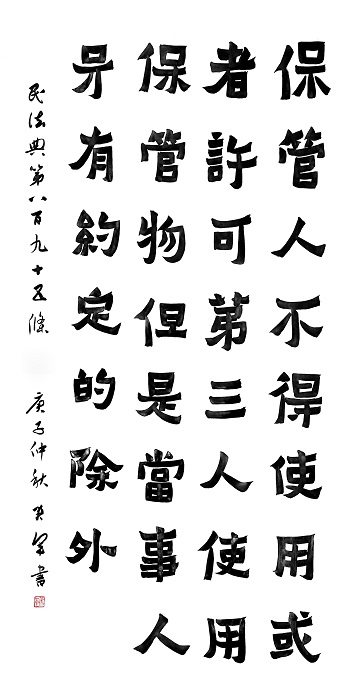 保管人不得使用或
者許可苐三人使用
保管物但是當事人
另有約定的除外
民法典第八百九十五條 庚子仲秋 書